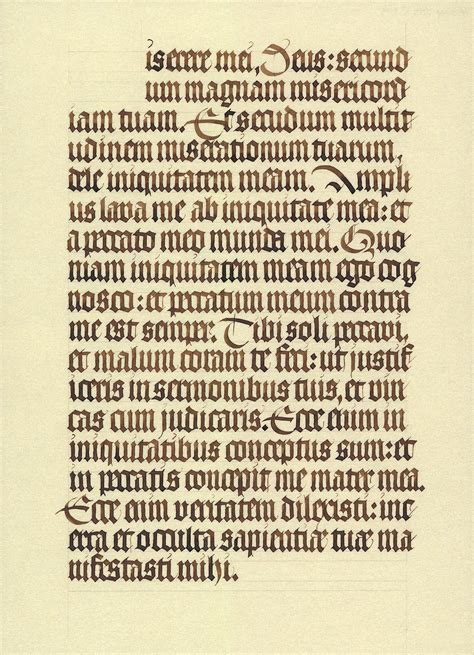 iserere mei, Deus: secund
um magnam misericord
iam tuam. Et secudum multit
udinem miserationum tuarum,
dele iniquitatem meam. Ampli
us lava me ab iniquitate mea: et
a peccato meo munda mei. Quo
niam iniquitatem meam ego cog
nosco: et peccatum meum contra
me est sempre. Tibi soli peccavi,
et malum coram te feci: ut justif
iceris in sermonibus tuis, et vin
cas cum judicaris. Ecce enim in
iniquitatibus conceptus sum: et
in peccatis concepit me mater mea.
Ecce enim veritatem dilexisti: inc
erta et occulta sapientiæ tuæ ma
nifestasti mihi.